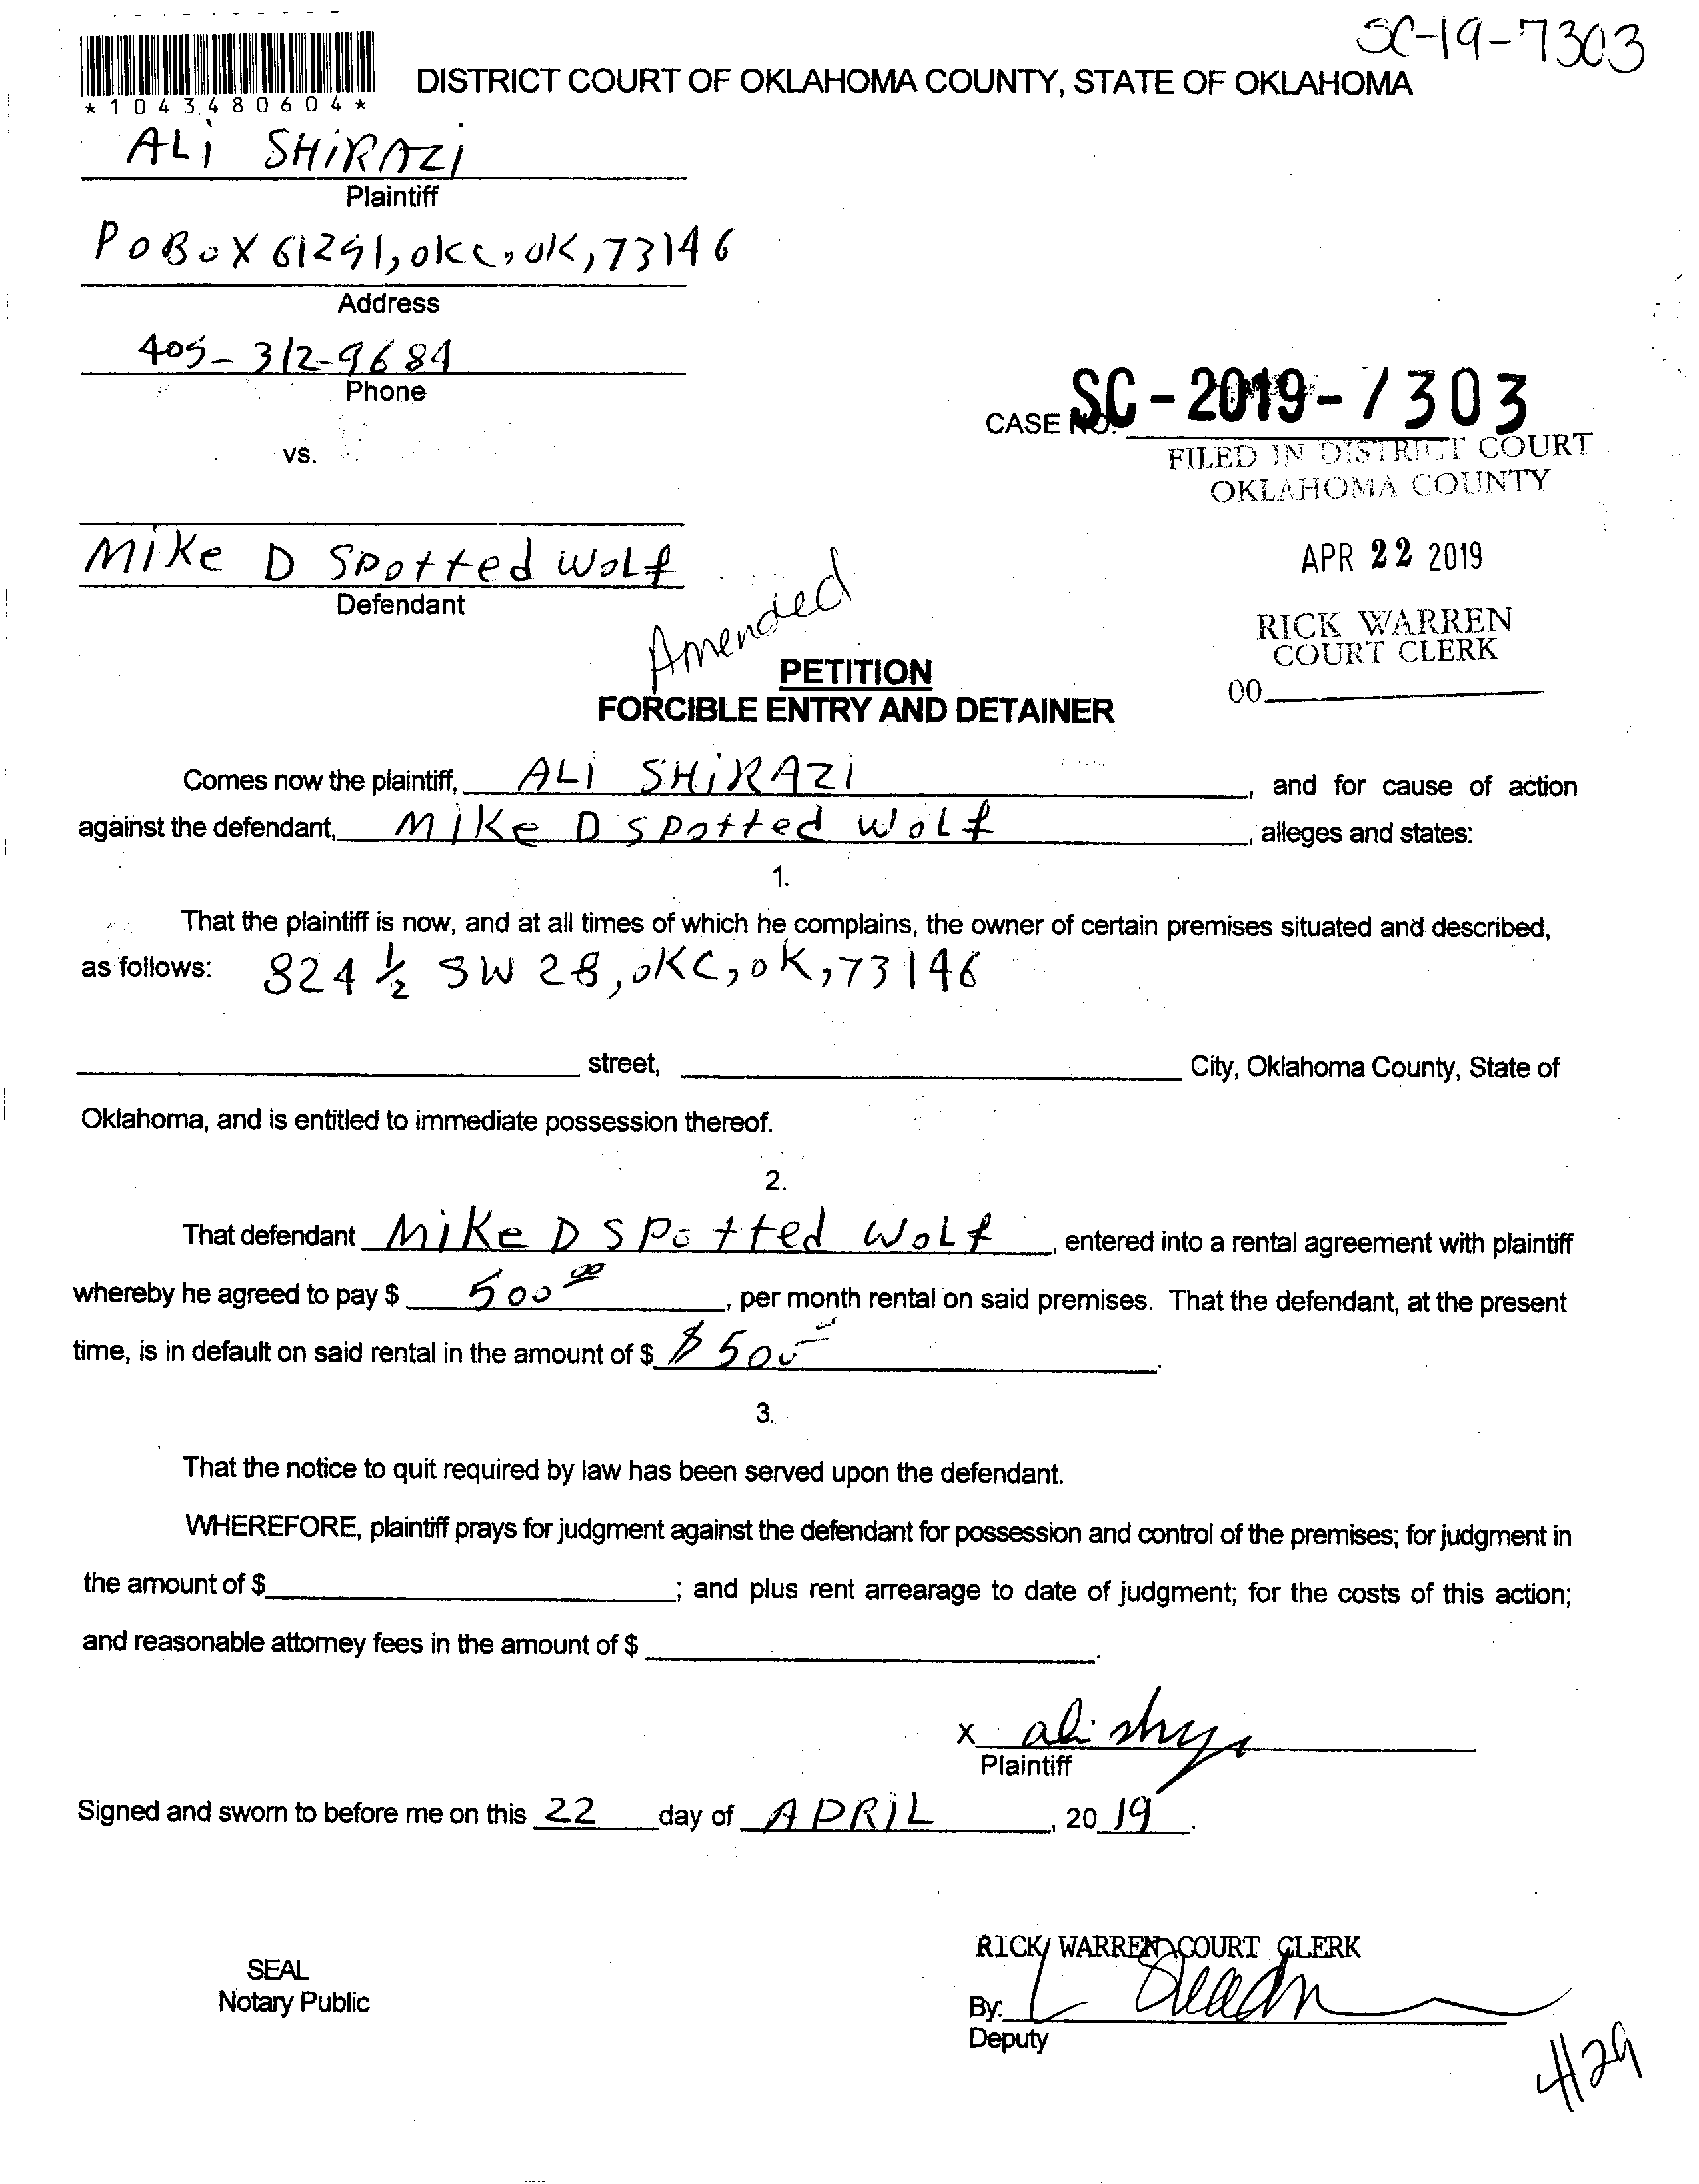 SC-19-7303
*1043480604*
DISTRICT COURT OF OKLAHOMA COUNTY, STATE OF OKLAHOMA
ALi SHiRAZi
Plaintiff
PoBoX 61291, okc, ok, 73146
Address
405-312-9684
Phone
CASE NO. SC-2019-7303
vs.
FILED IN DISTRICT COURT
OKLAHOMA COUNTY
APR 22 2019
MiKe D Spotted WoLf
Defendant
RICK WARREN
COURT CLERK
00
Amended
PETITION
FORCIBLE ENTRY AND DETAINER
Comes now the plaintiff, ALi SHiRAZi, and for cause of action
against the defendant, MiKe D Spotted WoLf, alleges and states:
1.
That the plaintiff is now, and at all times of which he complains, the owner of certain premises situated and described,
as follows: 824 ½ SW 28, OKC, OK, 73146
street, City, Oklahoma County, State of
Oklahoma, and is entitled to immediate possession thereof.
2.
That defendant MiKe D Spotted WoLf, entered into a rental agreement with plaintiff
whereby he agreed to pay $ 500 00, per month rental on said premises. That the defendant, at the present
time, is in default on said rental in the amount of $ $500.
3.
That the notice to quit required by law has been served upon the defendant.
WHEREFORE, plaintiff prays for judgment against the defendant for possession and control of the premises; for judgment in
the amount of $ ; and plus rent arrearage to date of judgment; for the costs of this action;
and reasonable attorney fees in the amount of $ .
x ali
Plaintiff
Signed and sworn to before me on this 22 day of APRiL, 20 19.
RICK WARREN COURT CLERK
SEAL
Notary Public
By:
Deputy
4/29